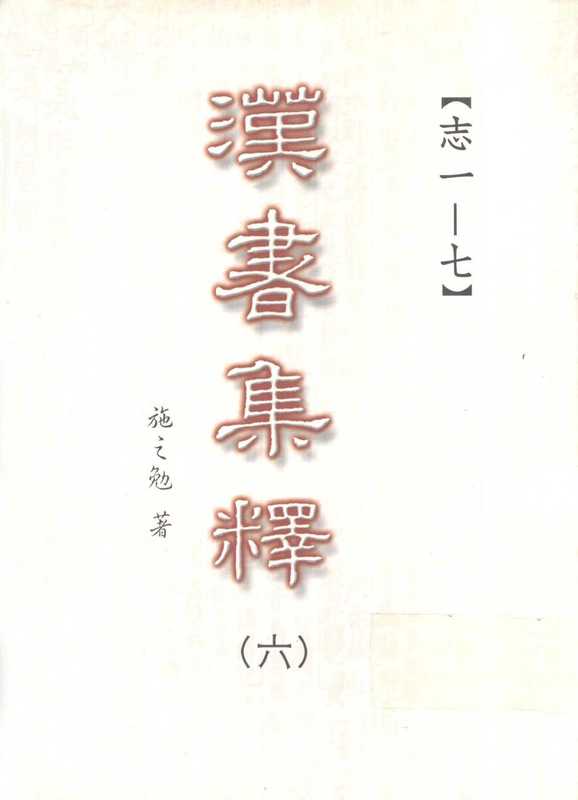 【志一—七】
漢書集釋
(六)
施之勉 著